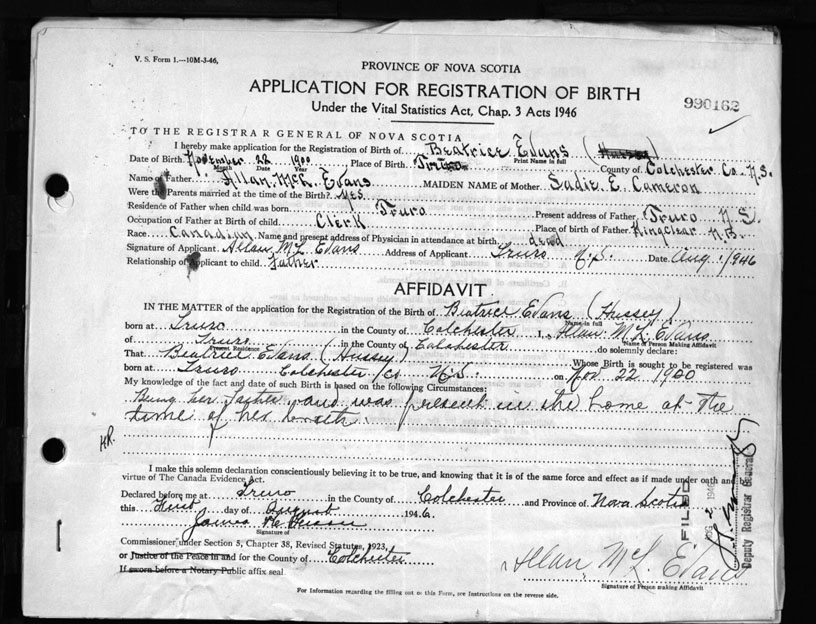 V. S. Form 1.—10M-3-46,
PROVINCE OF NOVA SCOTIA
APPLICATION FOR REGISTRATION OF BIRTH
990162
Under the Vital Statistics Act, Chap. 3 Acts 1946
TO THE REGISTRAR GENERAL OF NOVA SCOTIA
I hereby make application for the Registration of Birth of Beatrice Evans
Print Name in full
Date of Birth November 22 1900 Place of Birth Truro County of Colchester Co. N.S.
Month Date Year
Name of Father Allan McL. Evans MAIDEN NAME of Mother Sadie E. Cameron
Were the Parents married at the time of the Birth? Yes
Residence of Father when child was born Truro Present address of Father Truro N.S.
Occupation of Father at Birth of child Clerk Place of birth of Father Kingclear N.B.
Race Canadian Name and present address of Physician in attendance at birth dead
Signature of Applicant Allan McL Evans Address of Applicant Truro N.S. Date Aug. 1/946
Relationship of Applicant to child Father
AFFIDAVIT
IN THE MATTER of the application for the Registration of the Birth of Beatrice Evans (Hussey)
Name in full
born at Truro in the County of Colchester I, Allan McL Evans
Name of Person Making Affidavit
of Truro in the County of Colchester do solemnly declare:
Present Residence
That Beatrice Evans (Hussey) Whose Birth is sought to be registered was
born at Truro Colchester Co N.S. on Nov. 22 1900
My knowledge of the fact and date of such Birth is based on the following Circumstances:
Being her Father and was present in the home at the
time of her birth
I make this solemn declaration conscientiously believing it to be true, and knowing that it is of the same force and effect as if made under oath and
virtue of The Canada Evidence Act.
Declared before me at Truro in the County of Colchester and Province of Nova Scotia
this First day of August 1946
James
Signature of
Commissioner under Section 5, Chapter 38, Revised Statutes, 1923,
or Justice of the Peace in and for the County of Colchester
If sworn before a Notary Public affix seal.
Allan McL Evans
Signature of Person making Affidavit
FILED
Deputy Registrar General
For Information regarding the filling out of this Form, see Instructions on the reverse side.